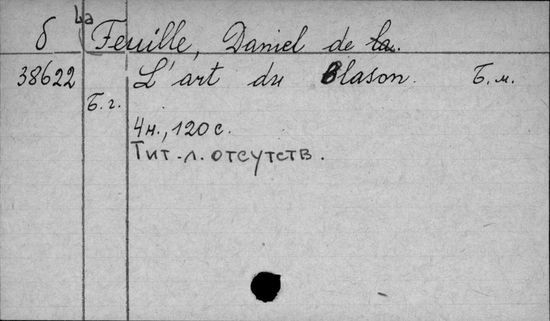 б La Feuille, Daniel de la.
38622 L'art du Blason. Б.м.
Б.г.
4н., 120 с.
Тит.-л. отсутств.